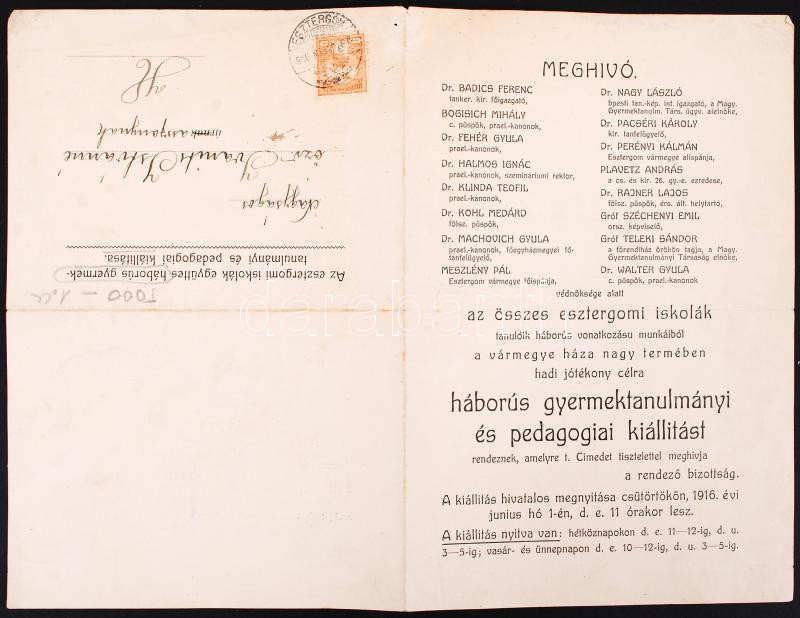 MEGHIVÓ.
Dr. BADICS FERENC
tanker. kir. főigazgató,
BOGISICH MIHÁLY
c. püspök, prael.-kanonok,
Dr. FEHÉR GYULA
prael.-kanonok,
Dr. HALMOS IGNÁC
prael.-kanonok, szemináriumi rektor,
Dr. KLINDA TEOFIL
prael.-kanonok,
Dr. KOHL MEDÁRD
fölsz. püspök,
Dr. MACHOVICH GYULA
prael.-kanonok, főegyházmegyei fő-
tanfelügyelő,
MESZLÉNY PÁL
Esztergom vármegye főispánja,
Dr. NAGY LÁSZLÓ
bpesti tan.-kép. int. igazgató, a Magy.
Gyermektanulm. Társ. ügyv. alelnöke,
Dr. PACSÉRI KÁROLY
kir. tanfelügyelő,
Dr. PERÉNYI KÁLMÁN
Esztergom vármegye alispánja,
PLAVETZ ANDRÁS
a cs. és kir. 26. gy.-e. ezredese,
Dr. RAJNER LAJOS
fölsz. püspök, érs. ált. helytartó,
Gróf SZÉCHENYI EMIL
orsz. képviselő,
Gróf TELEKI SÁNDOR
a főrendiház örökös tagja, a Magy.
Gyermektanulmányi Társaság elnöke,
Dr. WALTER GYULA
c. püspök, prael.-kanonok
védnöksége alatt
az összes esztergomi iskolák
tanulóik háborús vonatkozásu munkáiból
a vármegye háza nagy termében
hadi jótékony célra
háborús gyermektanulmányi
és pedagogiai kiállitást
rendeznek, amelyre t. Cimedet tisztelettel meghivja
a rendező bizottság.
A kiállitás hivatalos megnyitása csütörtökön, 1916. évi
junius hó 1-én, d. e. 11 órakor lesz.
A kiállitás nyitva van: hétköznapokon d. e. 11—12-ig, d. u.
3—5-ig; vasár- és ünnepnapon d. e. 10—12-ig, d. u. 3—5-ig.
Az esztergomi iskolák együttes háborús gyermek-
tanulmányi és pedagogiai kiállitása.
Nagyságos
özv. Ivanits Istvánné
úrnak asszonynak
ESZTERGOM
5000 —
darabanth